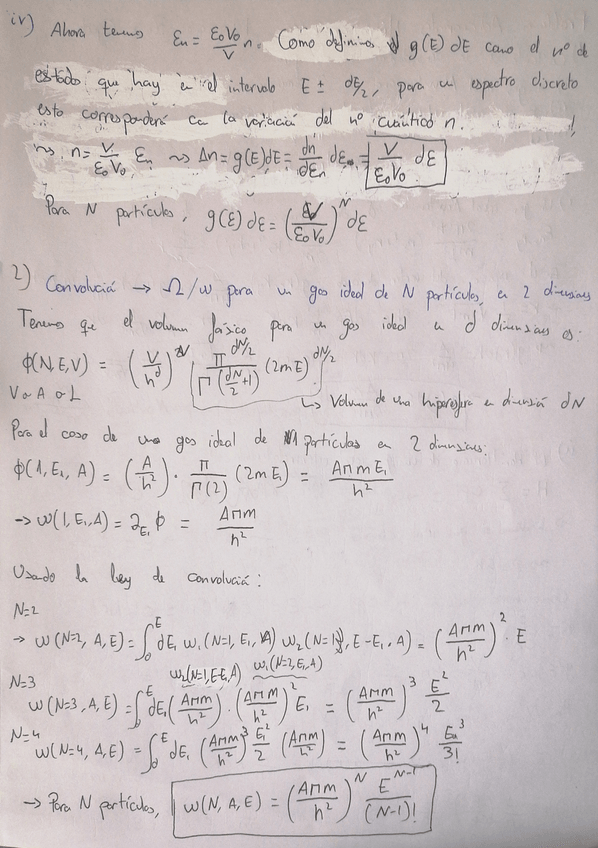 iv) Ahora tenemos εn = ε₀V₀/V n. Como definimos g(E) dE como el nº de
estados que hay en el intervalo E ± dE/2, para un espectro discreto
esto corresponderá con la variación del nº cuántico n.
⇝ n = V/ε₀V₀ εn ⇝ Δn = g(E)dE = dn/dεn dεn = V/ε₀V₀ dε
Para N partículas, g(E) dε = (V/ε₀V₀)^N dε
2) Convolución → Ω/ω para un gas ideal de N partículas, en 2 dimensiones
Tenemos que el volumen fásico para un gas ideal en d dimensiones es:
ϕ(N,E,V) = (V/h^d)^N (π^{dN/2}/Γ(dN/2+1) (2mE)^{dN/2}
V o A o L
↳ Volumen de una hiperesfera en dimensión dN
Para el caso de una gas ideal de partículas en 2 dimensiones:
ϕ(1,E₁,A) = (A/h²) · π/Γ(2) (2mE₁) = AπmE₁/h²
→ ω(1,E₁,A) = ∂_{E₁} ϕ = Aπm/h²
Usando la ley de convolución:
N=2
→ ω(N=2, A, E) = ∫₀^E dE₁ ω₁(N=1, E₁, A) ω₂(N=1, E-E₁, A) = (Aπm/h²)² · E
ω₂(N=1,E-E₁,A) ω₁(N=2,E₁,A)
N=3
ω(N=3, A, E) = ∫₀^E dE₁ (Aπm/h²) · (Aπm/h²)² E₁ = (Aπm/h²)³ E²/2
N=4
ω(N=4, A, E) = ∫₀^E dE₁ (Aπm/h²)³ E₁²/2 (Aπm/h²) = (Aπm/h²)⁴ E³/3!
→ Para N partículas, ω(N, A, E) = (Aπm/h²)^N E^{N-1}/(N-1)!